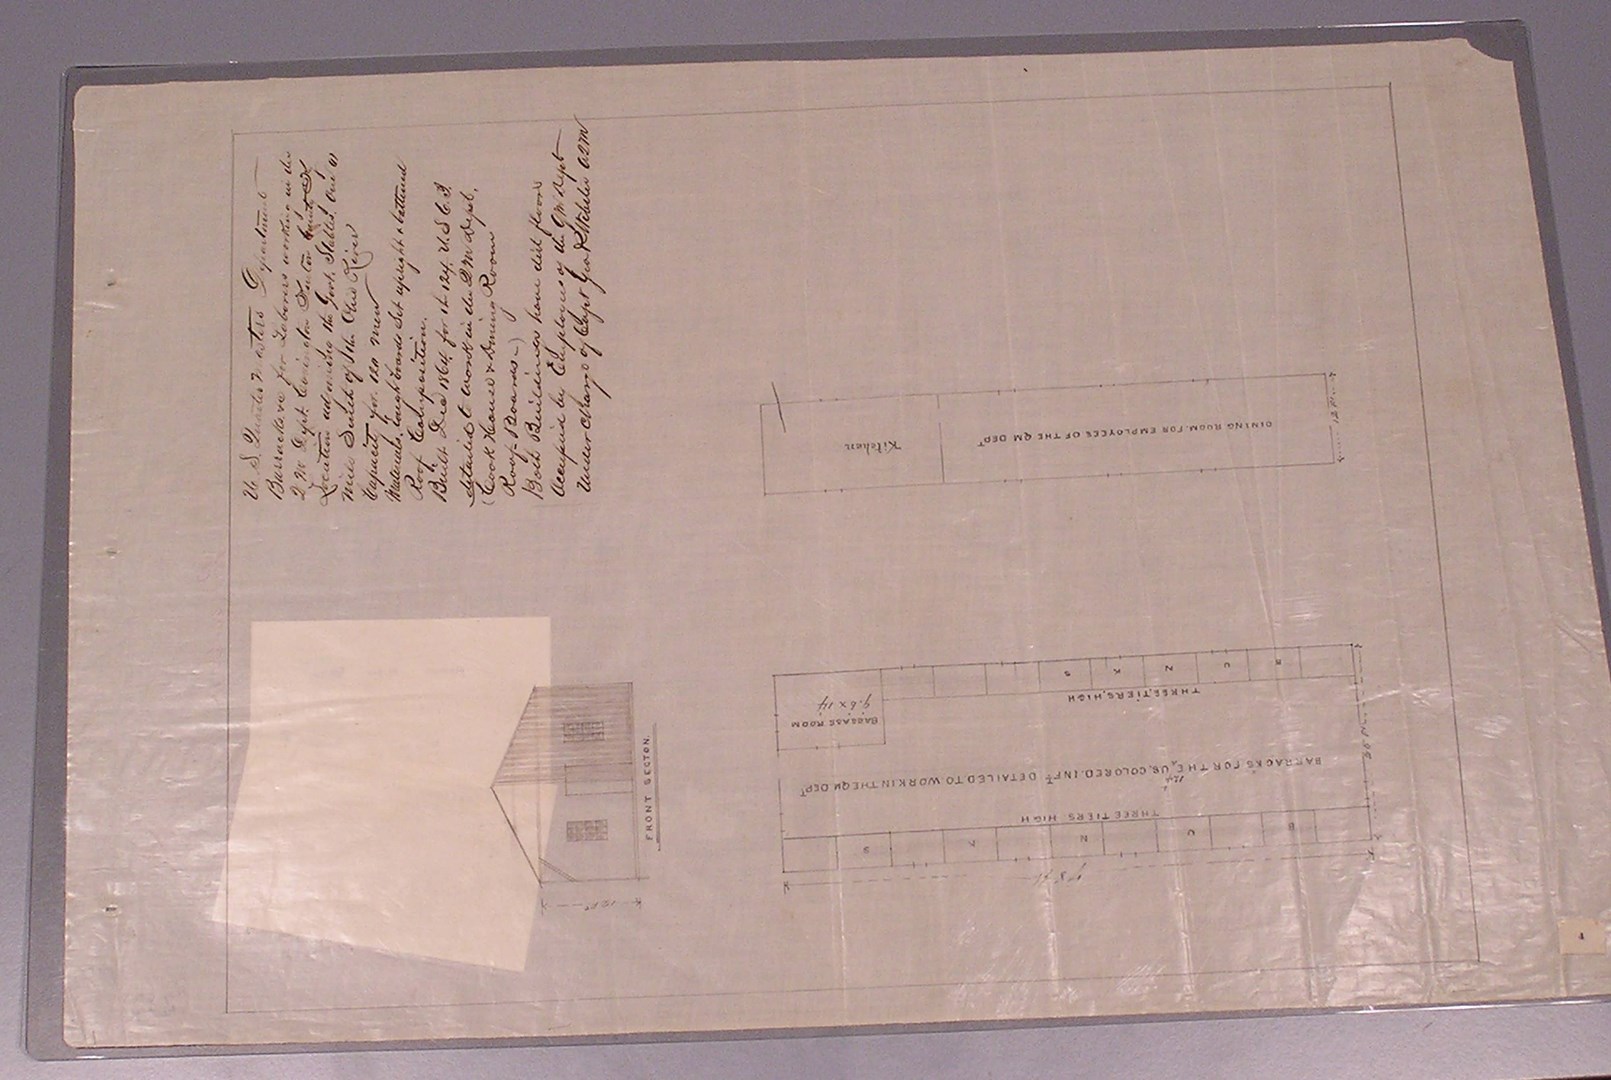 U. S. Quarter Masters Department
Barracks for Laborers working in the
Q M Dept. Covington
Location adjoining the Govt. Stables, One
mile South of the Ohio River
Capacity for 120 men
Materials, rough boards Set upright & battened
Roof Composition.
Built Dec 1864 for the 124. U. S. C. I.
detailed to work in the Q M Dept.
(Cook House & Dining Room
Roof Boards-)
Both Buildings have dirt floors
Occupied by Employees of the Q M Dept
Under Charge of Capt Geo A Q M
FRONT SECTON.
12 Ft
Kitchen
DINING ROOM. FOR EMPLOYEES OF THE QM DEPT
12 Ft
BAGGAGE ROOM
9.6 x 14
B U N K S
THREE, TIERS, HIGH
BARRACKS FOR THE 124 U.S. COLORED. INFT DETAILED TO WORK IN THE QM DEPT
THREE TIERS HIGH
B U N K S
4